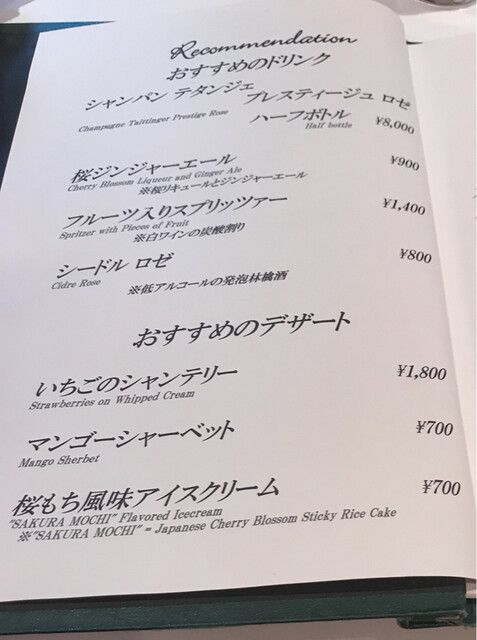 Recommendation
おすすめのドリンク
シャンパン テタンジェ プレスティージュ ロゼ
Champagne Taittinger Prestige Rose
ハーフボトル ¥8,000
Half bottle
桜ジンジャーエール ¥900
Cherry Blossom Liqueur and Ginger Ale
※桜リキュールとジンジャーエール
フルーツ入りスプリッツァー ¥1,400
Spritzer with Pieces of Fruit
※白ワインの炭酸割り
シードル ロゼ ¥800
Cidre Rose
※低アルコールの発泡林檎酒
おすすめのデザート
いちごのシャンテリー ¥1,800
Strawberries on Whipped Cream
マンゴーシャーベット ¥700
Mango Sherbet
桜もち風味アイスクリーム ¥700
"SAKURA MOCHI" Flavored Icecream
※"SAKURA MOCHI" = Japanese Cherry Blossom Sticky Rice Cake